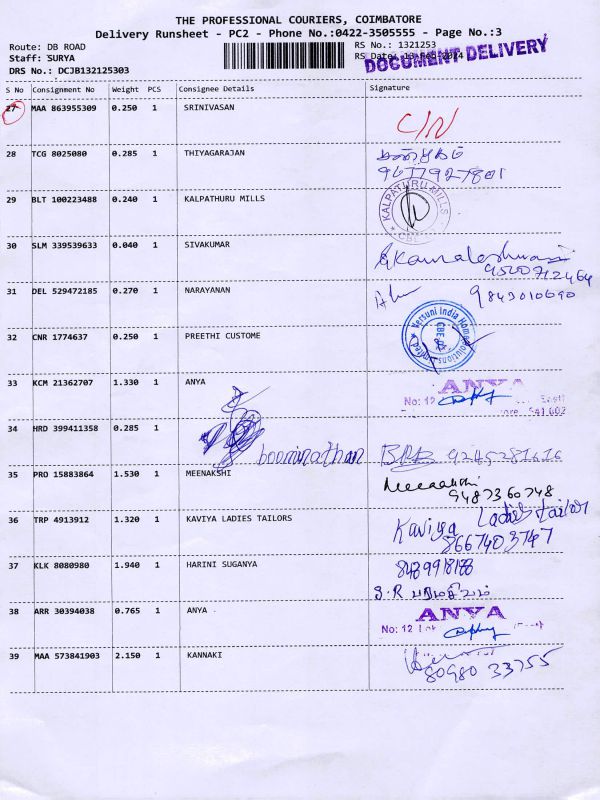 THE PROFESSIONAL COURIERS, COIMBATORE
Delivery Runsheet - PC2 - Phone No.:0422-3505555 - Page No.:3
Route: DB ROAD RS No.: 1321253
Staff: SURYA RS Date: 13-Feb-2024
DOCUMENT DELIVERY
DRS No.: DCJB132125303
S No Consignment No Weight PCS Consignee Details Signature
27 MAA 863955309 0.250 1 SRINIVASAN
C/N
28 TCG 8025080 0.285 1 THIYAGARAJAN
29 BLT 100223488 0.240 1 KALPATHURU MILLS KALPATURU MILLS CBE
30 SLM 339539633 0.040 1 SIVAKUMAR
Kamaleshwari
9500712464
31 DEL 529472185 0.270 1 NARAYANAN 9843010690
32 CNR 1774637 0.250 1 PREETHI CUSTOME Versuni India Home Solutions Limited CBE
33 KCM 21362707 1.330 1 ANYA ANYA
No: 12
641 002
34 HRD 399411358 0.285 1
boominathan 9245281616
35 PRO 15883864 1.530 1 MEENAKSHI Meenakshi
9487360748
36 TRP 4913912 1.320 1 KAVIYA LADIES TAILORS Kaviya Ladies tailor
8667403747
37 KLK 8080980 1.940 1 HARINI SUGANYA
S.R
38 ARR 30394038 0.765 1 ANYA ANYA
No: 12
39 MAA 573841903 2.150 1 KANNAKI
80980 33755